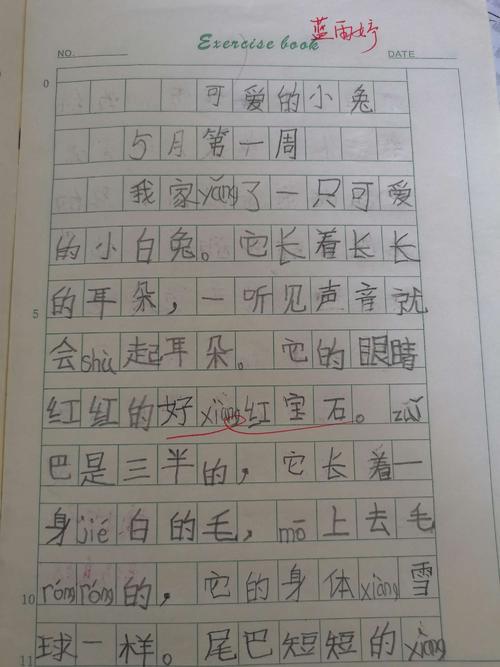 蓝雨婷
Exercise book
NO.
DATE
0
可爱的小兔
5月第一周
我家yǎng了一只可爱
的小白兔。它长着长长
5
的耳朵，一听见声音就
会shù起耳朵。它的眼睛
红红的好xiàng红宝石。zuǐ
巴是三半的，它长着一
身jié白的毛，mō上去毛
10
róngróng的，它的身体xiàng雪
11
球一样。尾巴短短的xiàng